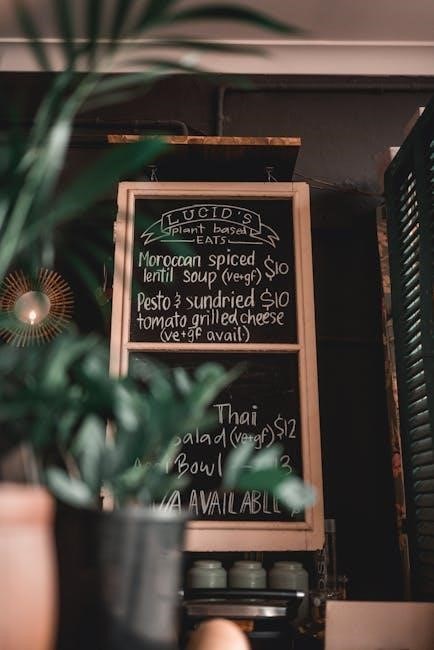 LUCID'S
plant based
EATS
Moroccan spiced
lentil soup (ve+gf) $10
Pesto & sundried $10
tomato grilled cheese
(ve+gf avail)
Thai
Salad (ve+gf) $12
Bowl
AVAILABLE